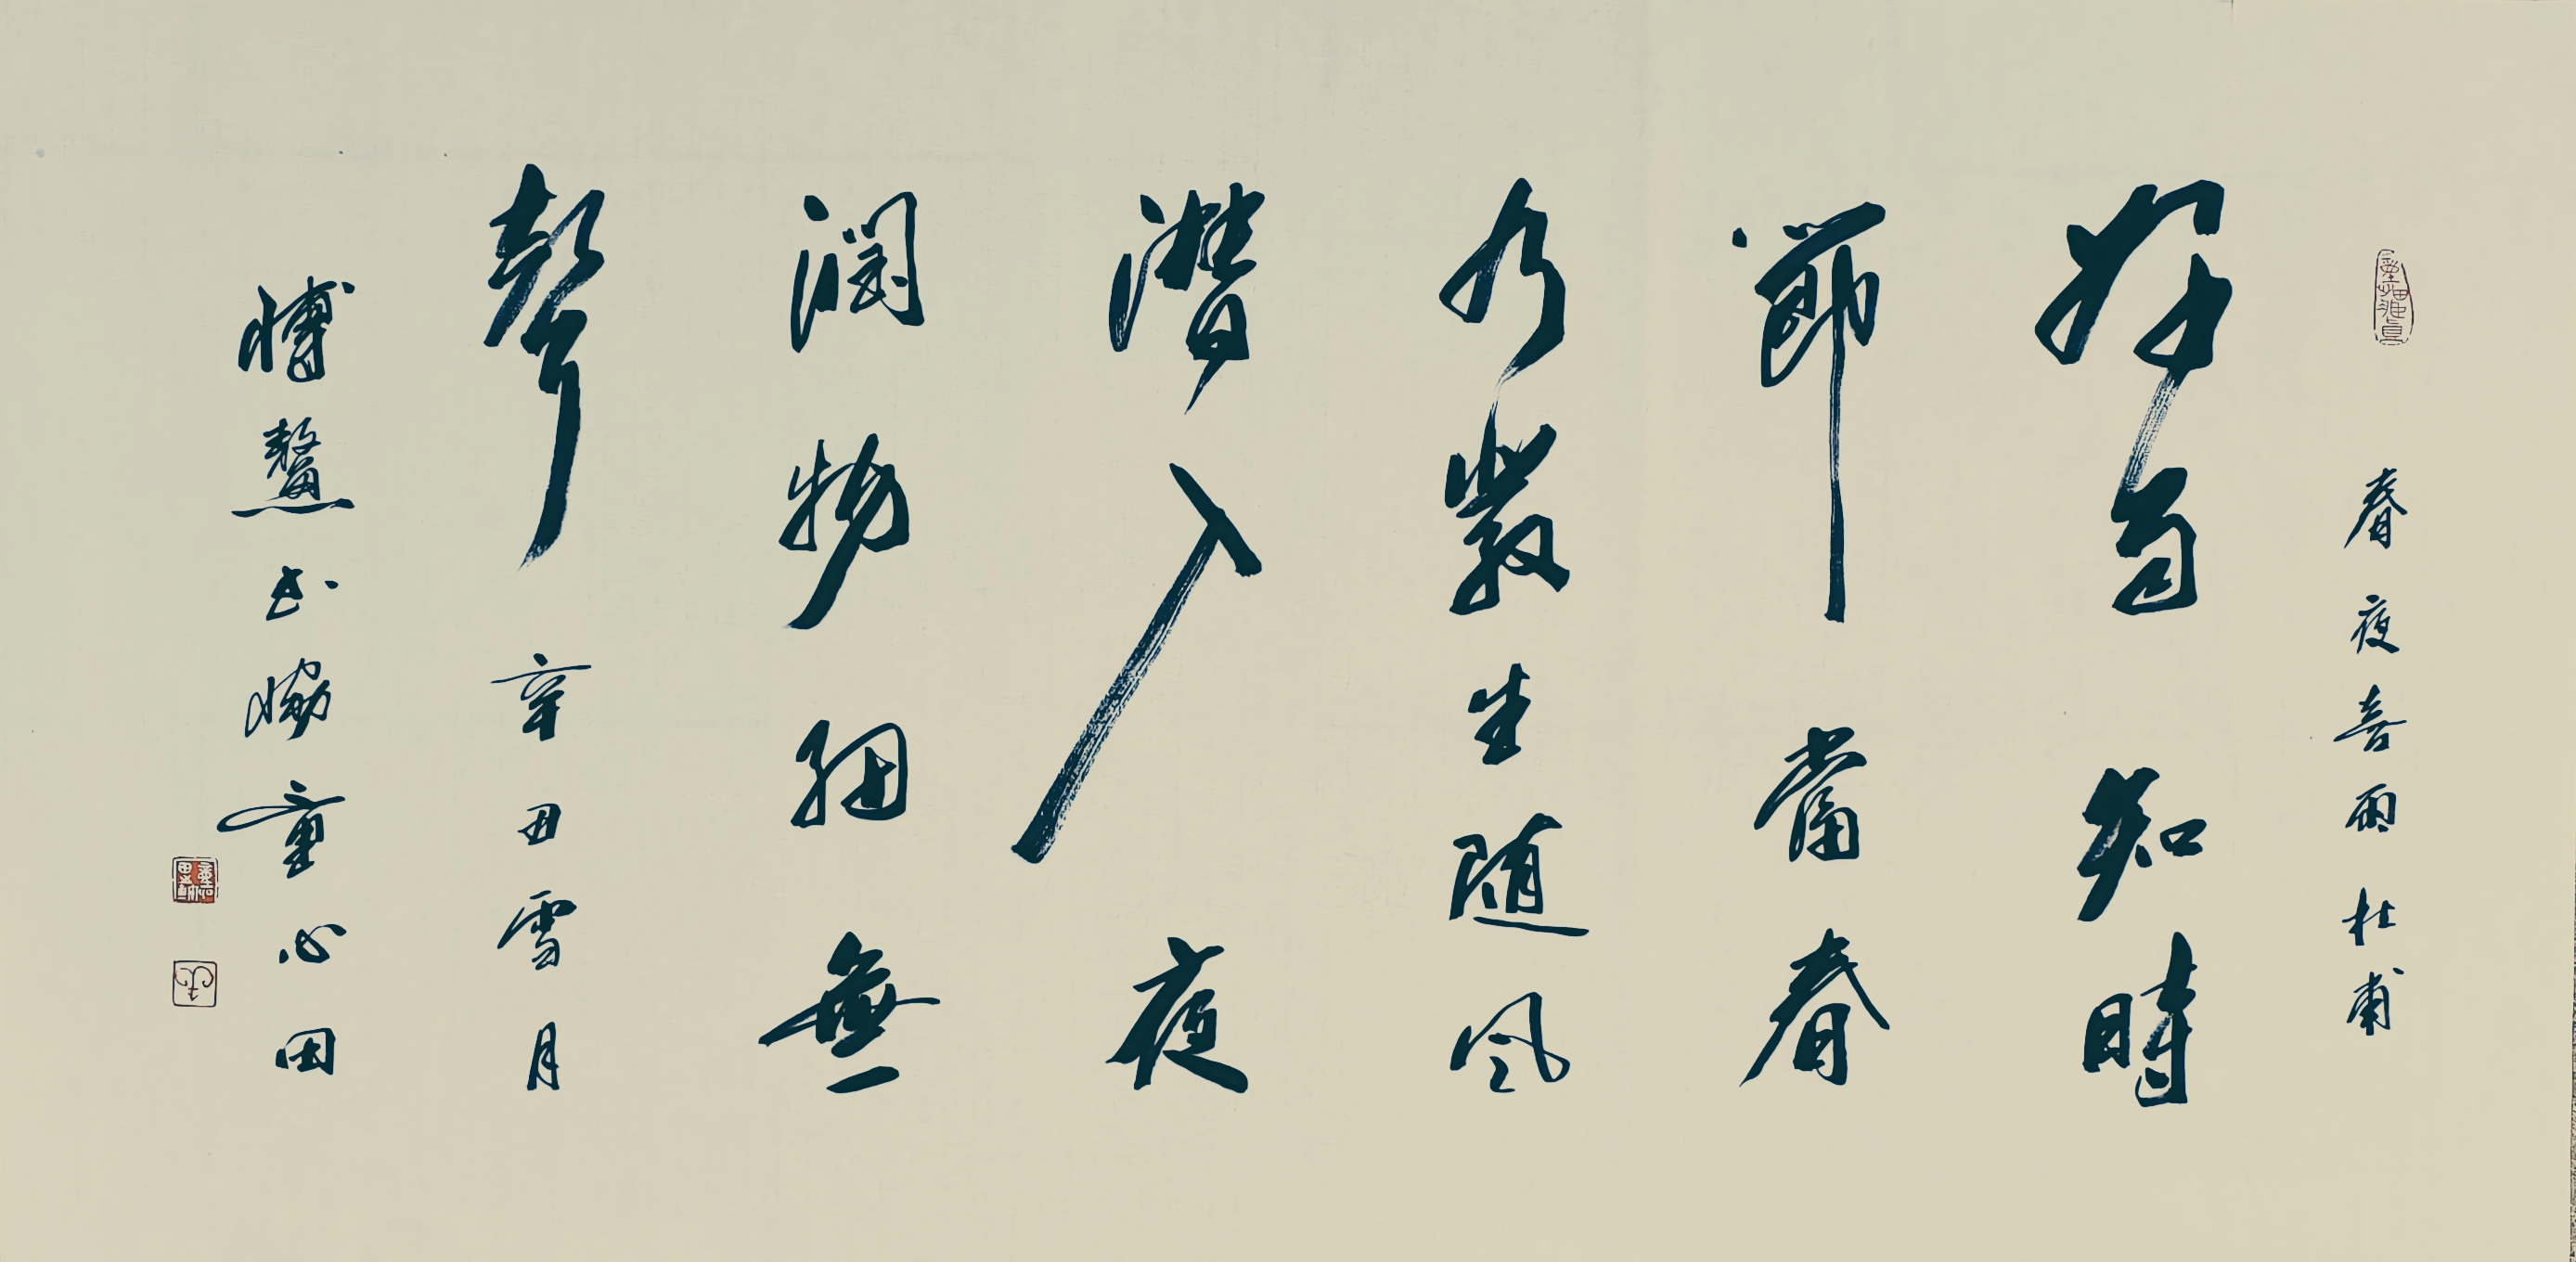 春夜喜雨 杜甫
好雨知時
節當春
乃發生随風
潛入夜
潤物細無
聲 辛丑雪月
博鰲書協童心田